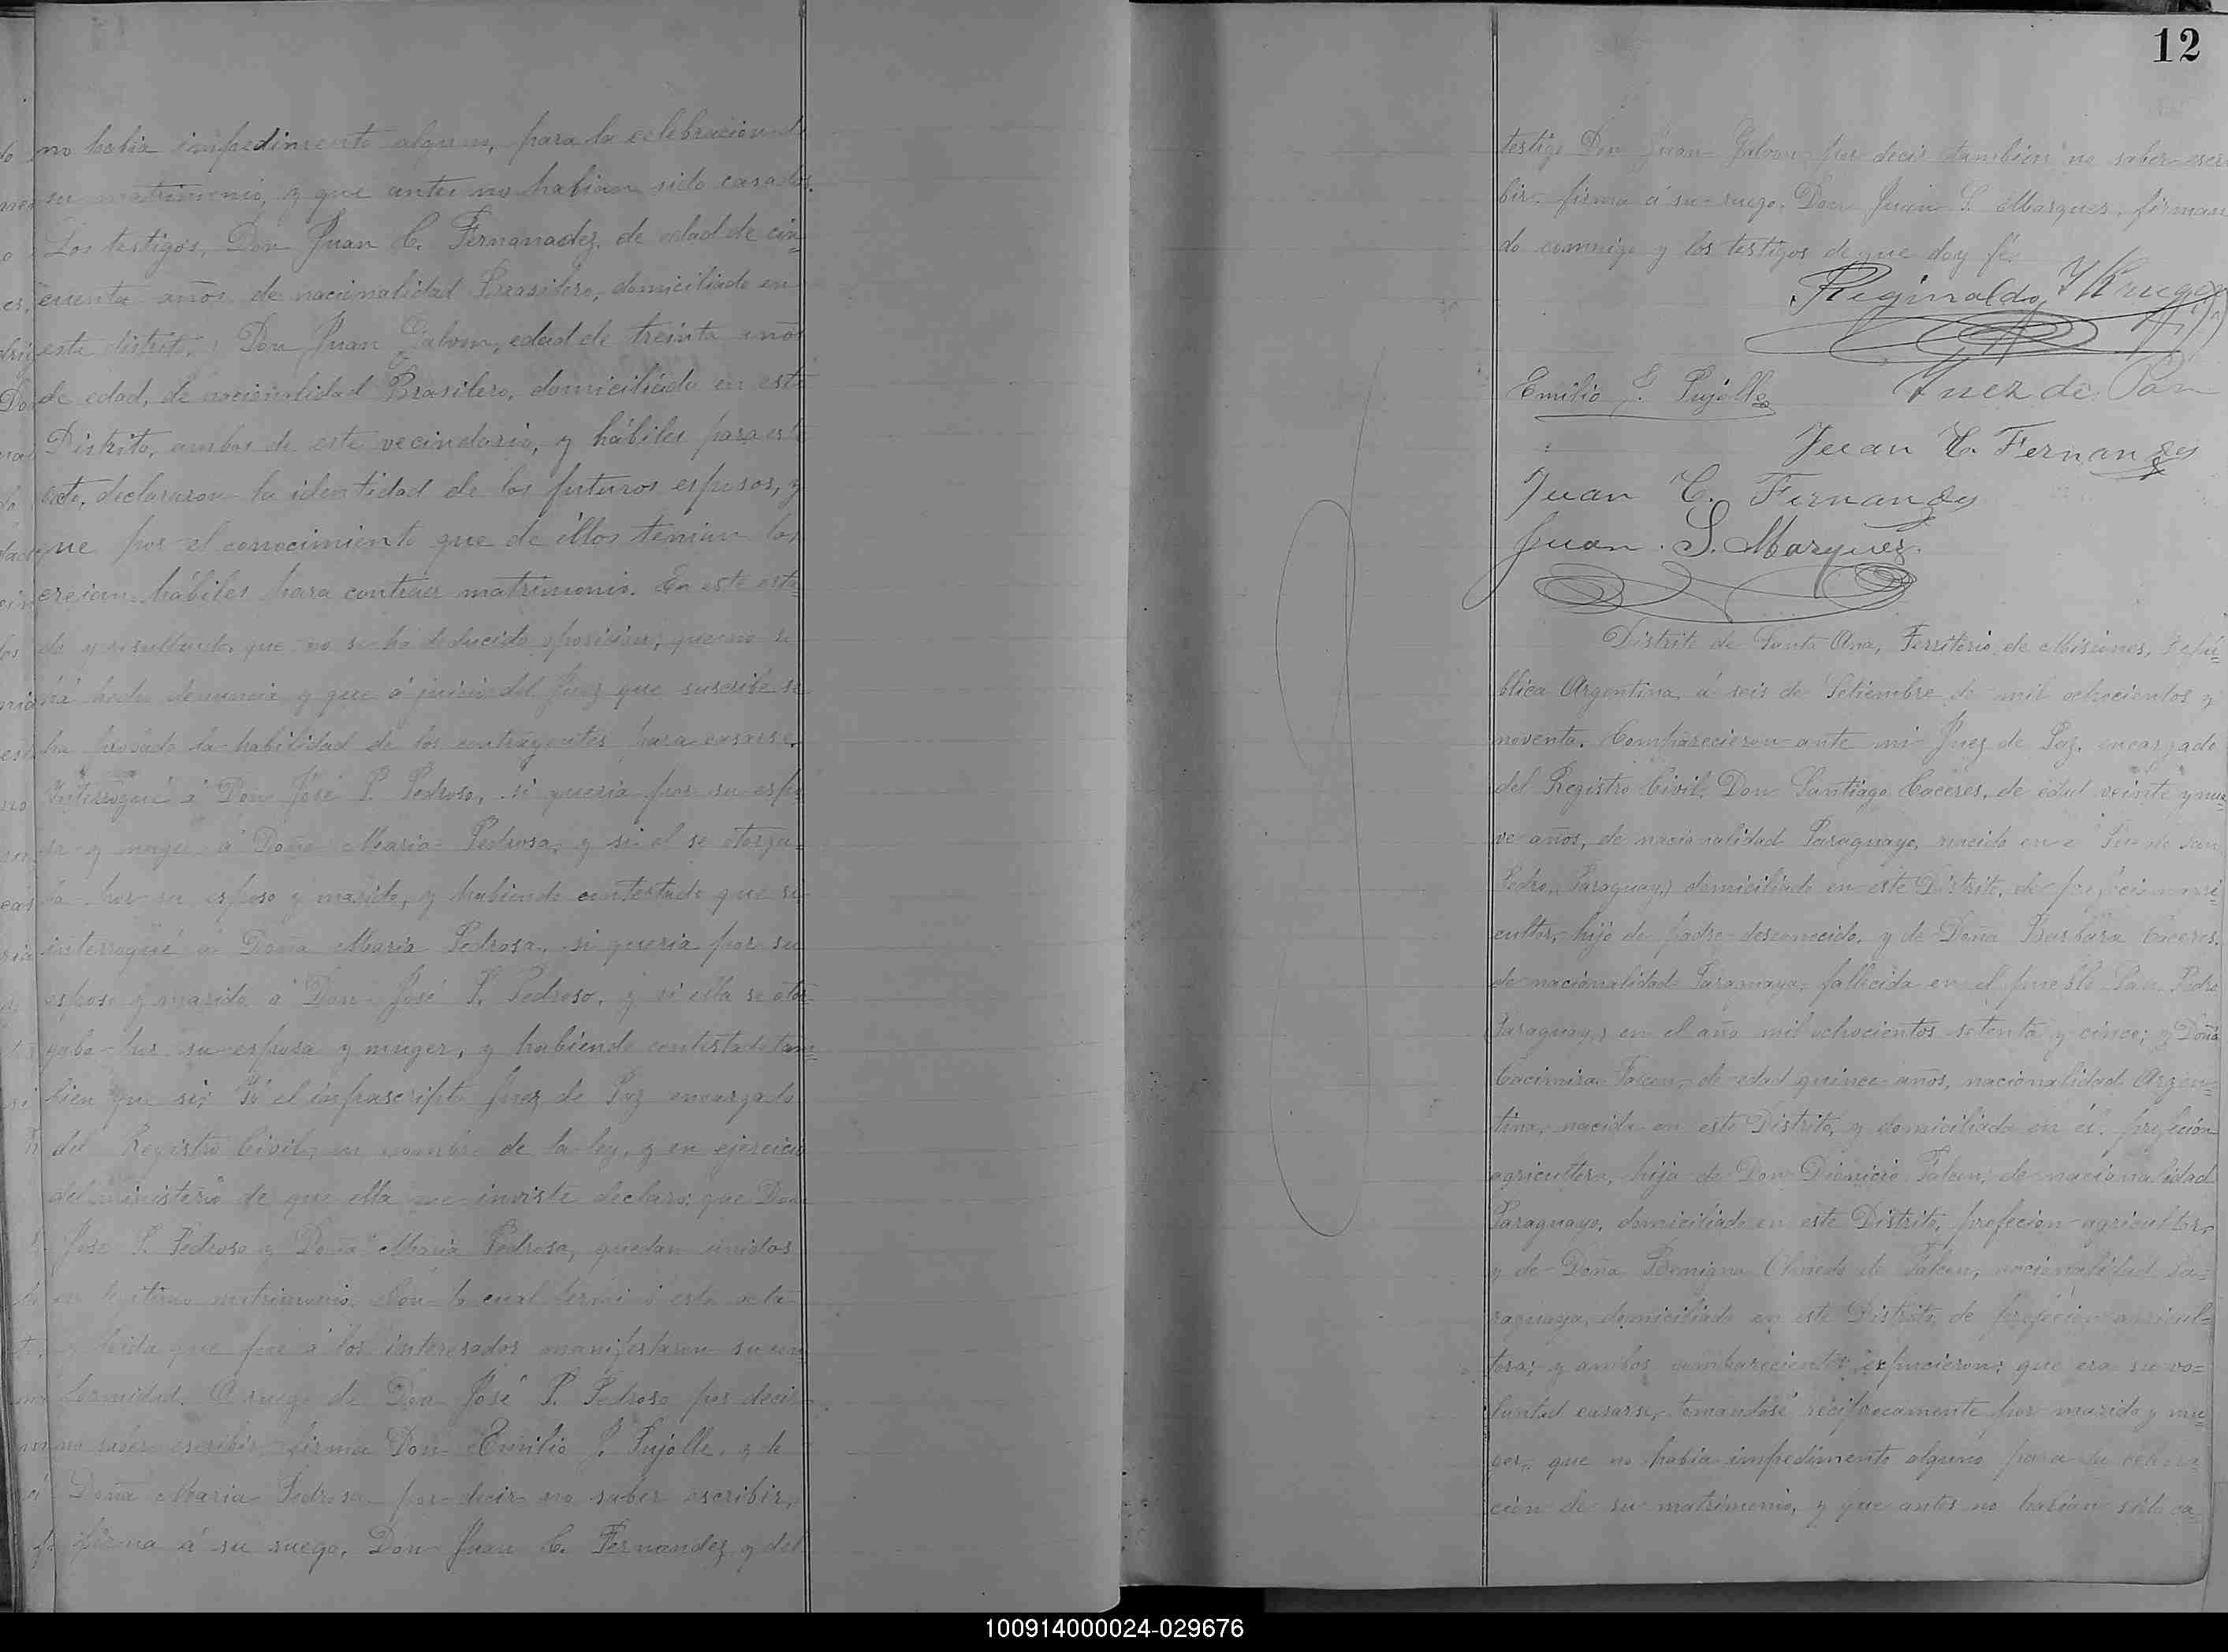 no habia impedimento alguno, para la celebracion de
su matrimonio, y que antes no habian sido casados.
Los testigos, Don Juan C. Fernanadez, de edad de cin=
cuenta años de nacionalidad Brasilero, domiciliado en
este distrito, Don Juan Galvon, edad de treinta años
de edad, de nacionalidad Brasilero, domiciliado en este
Distrito, ambos de este vecindario, y hábiles para este
acto, declararon la identidad de los futuros esposos, y
que por el conocimiento que de éllos tenian los
creian hábiles para contraer matrimonio. En este esta=
do y resultando, que no se ha deducido oposicion, que no se
há hecho denuncia y que á juicio del Juez que suscribe se
ha probado la habilidad de los contrayentes para casarse.
Interrogué á Don José P. Pedroso, si queria por su espo
sa y muger á Doña Maria Pedrosa, y si el se otorga=
ba por su esposo y marido, y habiendo contestado que si
interrogué á Doña Maria Pedrosa, si queria por su
esposo y marido á Don José P. Pedroso, y si ella se otor=
gaba por su esposa y muger, y habiendo contestado tam=
bien que si; Yó el infrascripto Juez de Paz encargado
del Registro Civil, en nombre de la ley, y en ejercicio
del ministerio de que ella me inviste declaro: que Don
José P. Pedroso y Doña Maria Pedrosa, quedan unidos
en lejitimo matrimonio. Con lo cual terminó esta acta
y leida que fue á los interesados manifestaron su con
formidad. A ruego de Don José P. Pedroso por decir
no saber escribir, firma Don Emilio J. Pujolle, y de
Doña Maria Pedrosa por decir no saber escribir,
firma á su ruego, Don Juan C. Fernandez y del
12
testigo Don Juan Galvon, por decir tambien no saber escri
bir, firma á su ruego, Don Juan S. Marquez, firman
do conmigo y los testigos de que doy fé.
Reginaldo Krieger
Emilio J. Pujolle
Juez de Paz
Juan C. Fernandez
Juan C. Fernandez
Juan S. Marquez
Distrito de Santa Ana, Territorio de Misiones, Repú=
blica Argentina, á seis de Setiembre de mil ochocientos y
noventa. Comparecieron ante mi Juez de Paz, encargado
del Registro Civil, Don Santiago Caceres, de edad veinte y nue=
ve años, de nacionalidad Paraguayo, nacido en San
Pedro, (Paraguay,) domiciliado en este Distrito, de profecion agri=
cultor, hijo de padre desconocido, y de Doña Barbara Caceres,
de nacionalidad Paraguaya, fallecida en el pueblo San Pedro
(Paraguay,) en el año mil ochocientos setenta y cinco; y Doña
Cacimira Falcon, de edad quince años, nacionalidad Argen=
tina, nacida en este Distrito, y domiciliada en él. profecion
agricultora, hija de Don Dionicio Falcon, de nacionalidad
Paraguayo, domiciliado en este Distrito, profecion agricultor,
y de Doña Benigna Olmedo de Falcon, nacionalidad Pa=
raguaya, domiciliada en este Distrito, de profecion agricul=
tora; y ambos comparecientes expucieron: que era su vo=
luntad casarse, tomandose reciprocamente por marido y mu=
ger, que no habia impedimento alguno para la celebra
cion de su matrimonio, y que antes no habian sido ca=
100914000024-029676